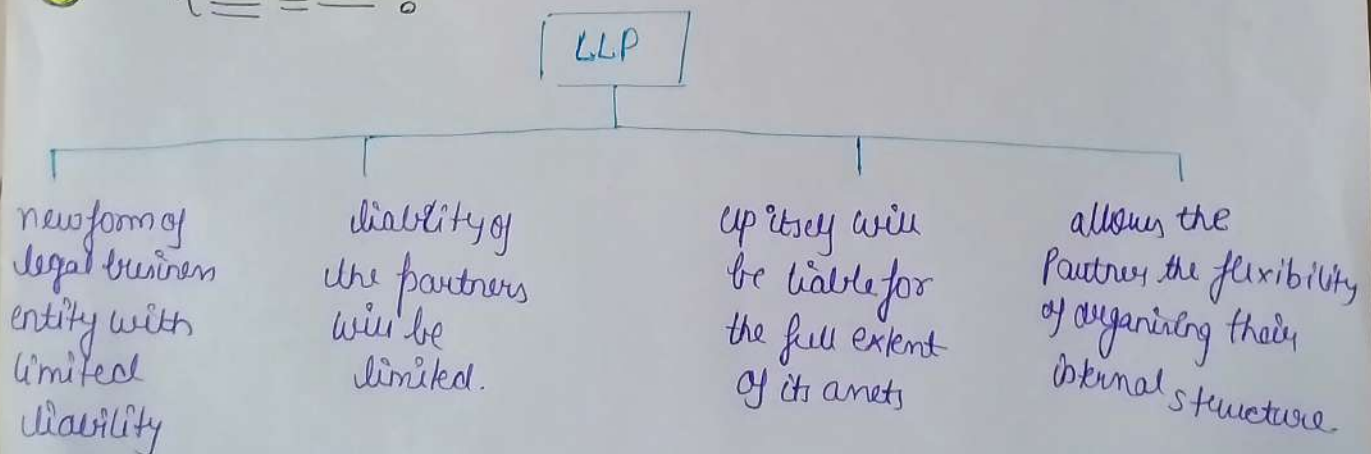 LLP
new form of
legal business
entity with
limited
liability
liability of
the partners
will be
limited.
LLP itself will
be liable for
the full extent
of its assets
allows the
Partners the flexibility
of organising their
internal structure.